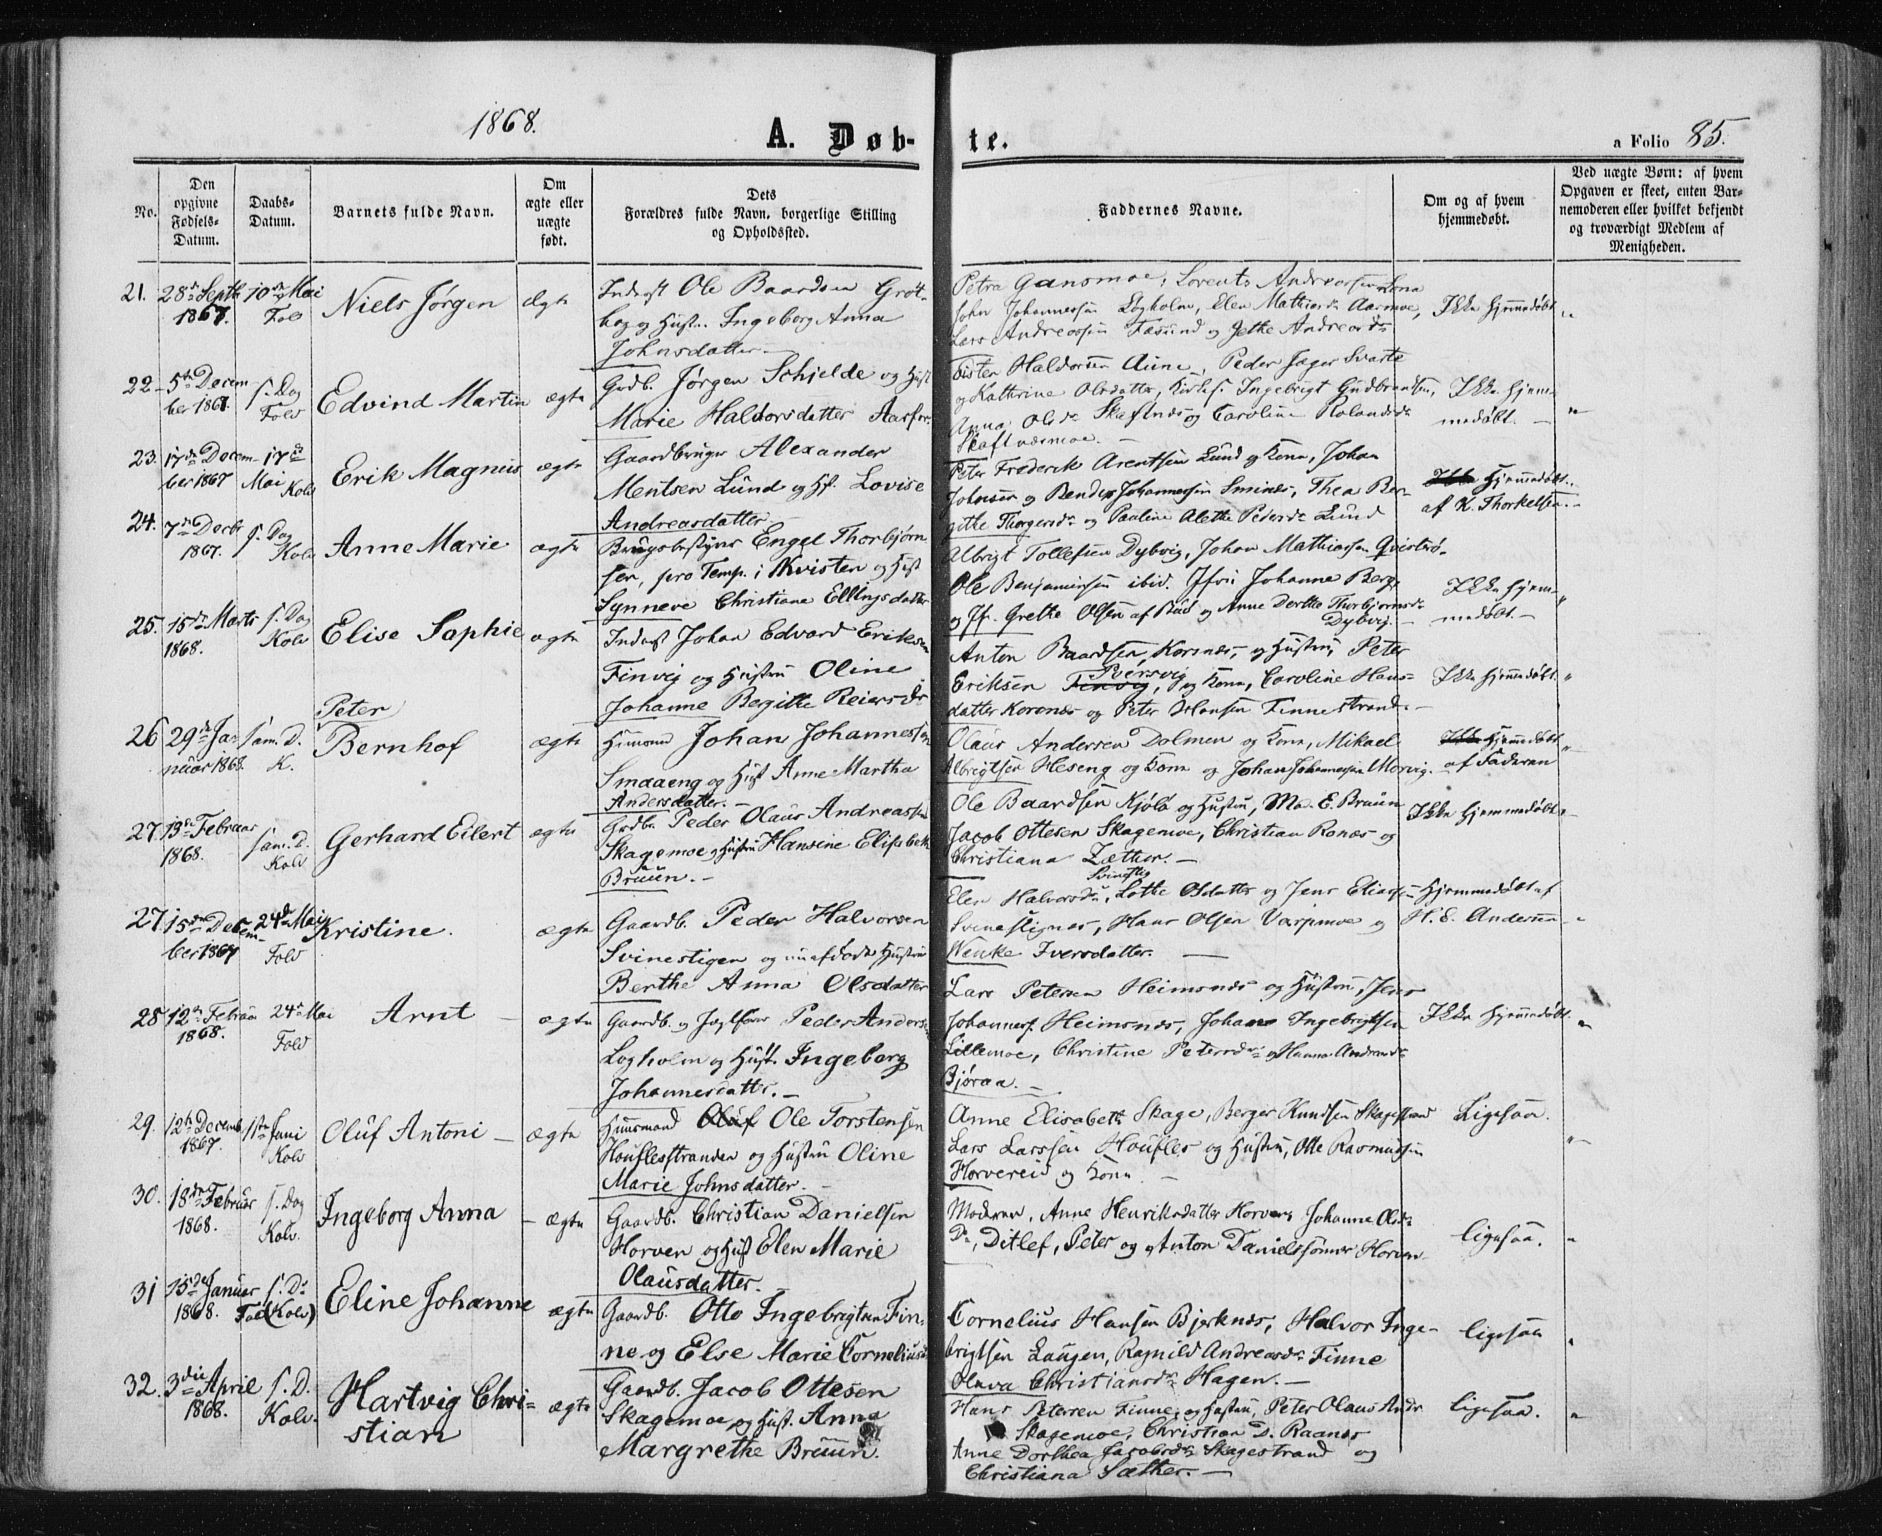 1868.
A. Døb-
te.
a Folio 85.
No.
Den opgivne Fødsels-Datum.
Daabs-Datum.
Barnets fulde Navn.
Om ægte eller uægte født.
Dets Forældres fulde Navn, borgerlige Stilling og Opholdssted.
Faddernes Navne.
Om og af hvem hjemmedøbt.
Ved uægte Børn: af hvem Opgaven er skeet, enten Barnemoderen eller hvilket bekjendt og troværdigt Medlem af Menigheden.
21. 28de Septb 1867. 10de Mai Fold
Niels Jørgen
Ægte
Inderst Ole Baardsen Grøt-
Ingeborg Anna
Johnsdatter.
Petra Gansmoe, Lorents Andreassen
John Johannessen Løgholm, Elen Mathiasdr Aarmoe,
Lars Andreassen Fæsund og Jethe Andreasdr
Ikke hjemmedøbt
22. 5te Decem-
ber 1867. s. Dag
Fold
Edvind Martin
ægte
Grdb. Jørgen Schjelde og Hust
Marie Haldorsdatter Aarfor.
Haldorsen Aune, Peder Jager Svarte
og Kathrine Olsdatter, Kirkes. Ingebrigt Gudbrandsen,
Anna Olsdr Skafsnæs og Caroline Rolandsdr
Skaftnæsmoe.
Ikke hjem-
medøbt.
23. 17de Decem-
ber 1867 17de
Mai Kolv
Erik Magnus
ægte
Gaardbruger Alexander
Mentsen Lund og Hst. Lovise
Andreasdatter
Peter Frederik Arentsen Lund og Kone, Johan
Johnsen og Johannessen Smines, Thea Ber-
gethe Thorgersdr og Pauline Alethe Pedersdr Lund
Ikke Hjemmedøbt
af K. Thorkelsen.
24. 7de Decbr
1867. s. Dag
Kolv
Anne Marie
ægte
Brugsbestyrer Engel Thorbjørn
sen, pro Temp. i Kvisten og Hust
Synneve Christiane Ellingsdatter
Albrigt Tollefsen Dybvig, Johan Mathiassen Qvistrø.
Ole Benjaminsen ibid. Jfru Johanne Berg,
og Jfr. Grethe Olsen af Stad og Anne Dorthea Thorbjørnsdr
Dybvig.
Ikke hjem-
medøbt.
25. 15de Marts
1868. s. Dag
Kolv
Elise Sophie
ægte
Inderst Johan Edvard Eriksen
Finvig og Hustru Oline
Johanne Bergitte Reiersdr
Anton Baardsen, Korsnæs, og Hustru, Peter
Eriksen Finvig, og Kone, Caroline Hans-
datter Korsnæs og Peter Hansen Finnestrand.
Ikke hjemmedøbt
26 29de Ja-
nuar 1868. sam. D.
K.
Peter
Bernhof
ægte
Huusmd Johan Johannessen
Smaaeng og Hust Anne Martha
Andersdatter.
Olaus Andersen Dolmen og Kone, Mikael
Albrigtsen Heseng og Kone og Johan Johannessen Morvig.
Ikke Hjemmedøbt
af Faderen
27. 13de Februar
1868. sam. D.
Kolv
Gerhard Eilert
ægte
Grdb. Peder Olaus Andreassen
Skagemoe og Hustru Hansine Elisabeth
Bruun.
Ole Baardsen Kjølø og Hustru, Ma. E. Bruun
Jacob Ottesen Skagemoe, Christian Ranes og
Christiana Zæther.
Ikke hjemmedøbt
27. 15de Decem-
ber 1867 24de Mai
Fold
Kristine.
ægte
Gaardb. Peder Halvorsen
Svinestigen og nu afdøde Hustru
Berthe Anna Olsdatter
Elen Halvorsdr, Lothe Olsdatter og Jens Eliass
Svinestignes, Hans Olsen Varpmoe og
Wenke Iversdatter.
Hjemmedøbt af
H. E. Andersen
28 12te Februar
1868. 24de Mai
Fold
Arnt
ægte
Gaardb. og Peder Andersen
Løgholm og Hust. Ingeborg
Johannesdatter.
Lars Petersen Heimsnæs og Hustru, Jens
Johanness. Heimsnæs, Johan Ingebrigtsen
Lillemoe, Christine Petersdr og Hanna Andreasdr
Bjøraa.
Ikke hjemmedøbt.
29. 12te Decemb.
1867. 11te Juni
Kolv
Oluf Antoni
ægte
Huusmand Oluf Ole Torstensen
Houflesstranden og Hustru Oline
Marie Johnsdatter.
Anne Elisabeth Skage, Berger Knudsen Skagestrand
Lars Larssen Houfles og Hustru, Otte Rasmussen
Horvereid og Kone.
Ligesaa.
30. 18de Februar
1868. s. Dag
Kolv.
Ingeborg Anna
ægte
Gaardb. Christian Danielsen
Horven og Hust Elen Marie
Olausdatter.
Moderen, Anne Henriksdatter Horven, Johanne Olsdr
Do, Ditlef, Peter og Anton Danielssønner Horven
ligesaa.
31 15de Januar
1868. s. D.
Fold (Kolv)
Eline Johanne
ægte
Gaardb. Otto Ingebrigtsen Fin-
ne og Else Marie Corneliusd
Cornelius Hansen Bjerknes, Halvor Inge-
brigtsen Laugen, Ragnild Andreasdr Finne
Oluva Christiansdr Hagen.
ligesaa
32. 3die April
1868. s. D.
Kolv.
Hartvig Chri-
stian
ægte
Gaardb. Jacob Ottesen
Skagemoe og Hust. Anna
Margrethe Bruun.
Hans Petersen Finne og Hustru, Peter Olaus Andr
Skagemoe, Christian D. Raanes
Anne Dorthea Jacobsdr Skagestrand og
Christiana Sæther.
ligesaa.